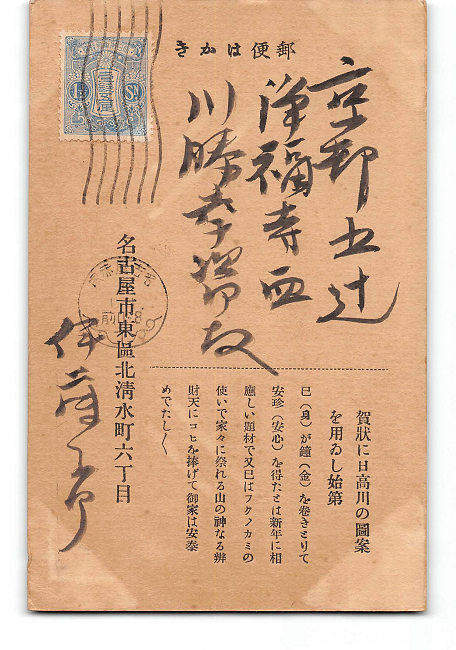 郵便はかき
京都五辻
浄福寺西
川勝
賀狀に日高川の圖案
を用ゐし始第
巳(身)が鐘(金)を卷きとりて
安珍(安心)を得たとは新年に相
應しい題材で又巳はフクノカミの
使いで家々に祭れる山の神なる辨
財天にコヒを捧げて御家は安泰
めでたし〱
名古屋市東區北淸水町六丁目
伊藤